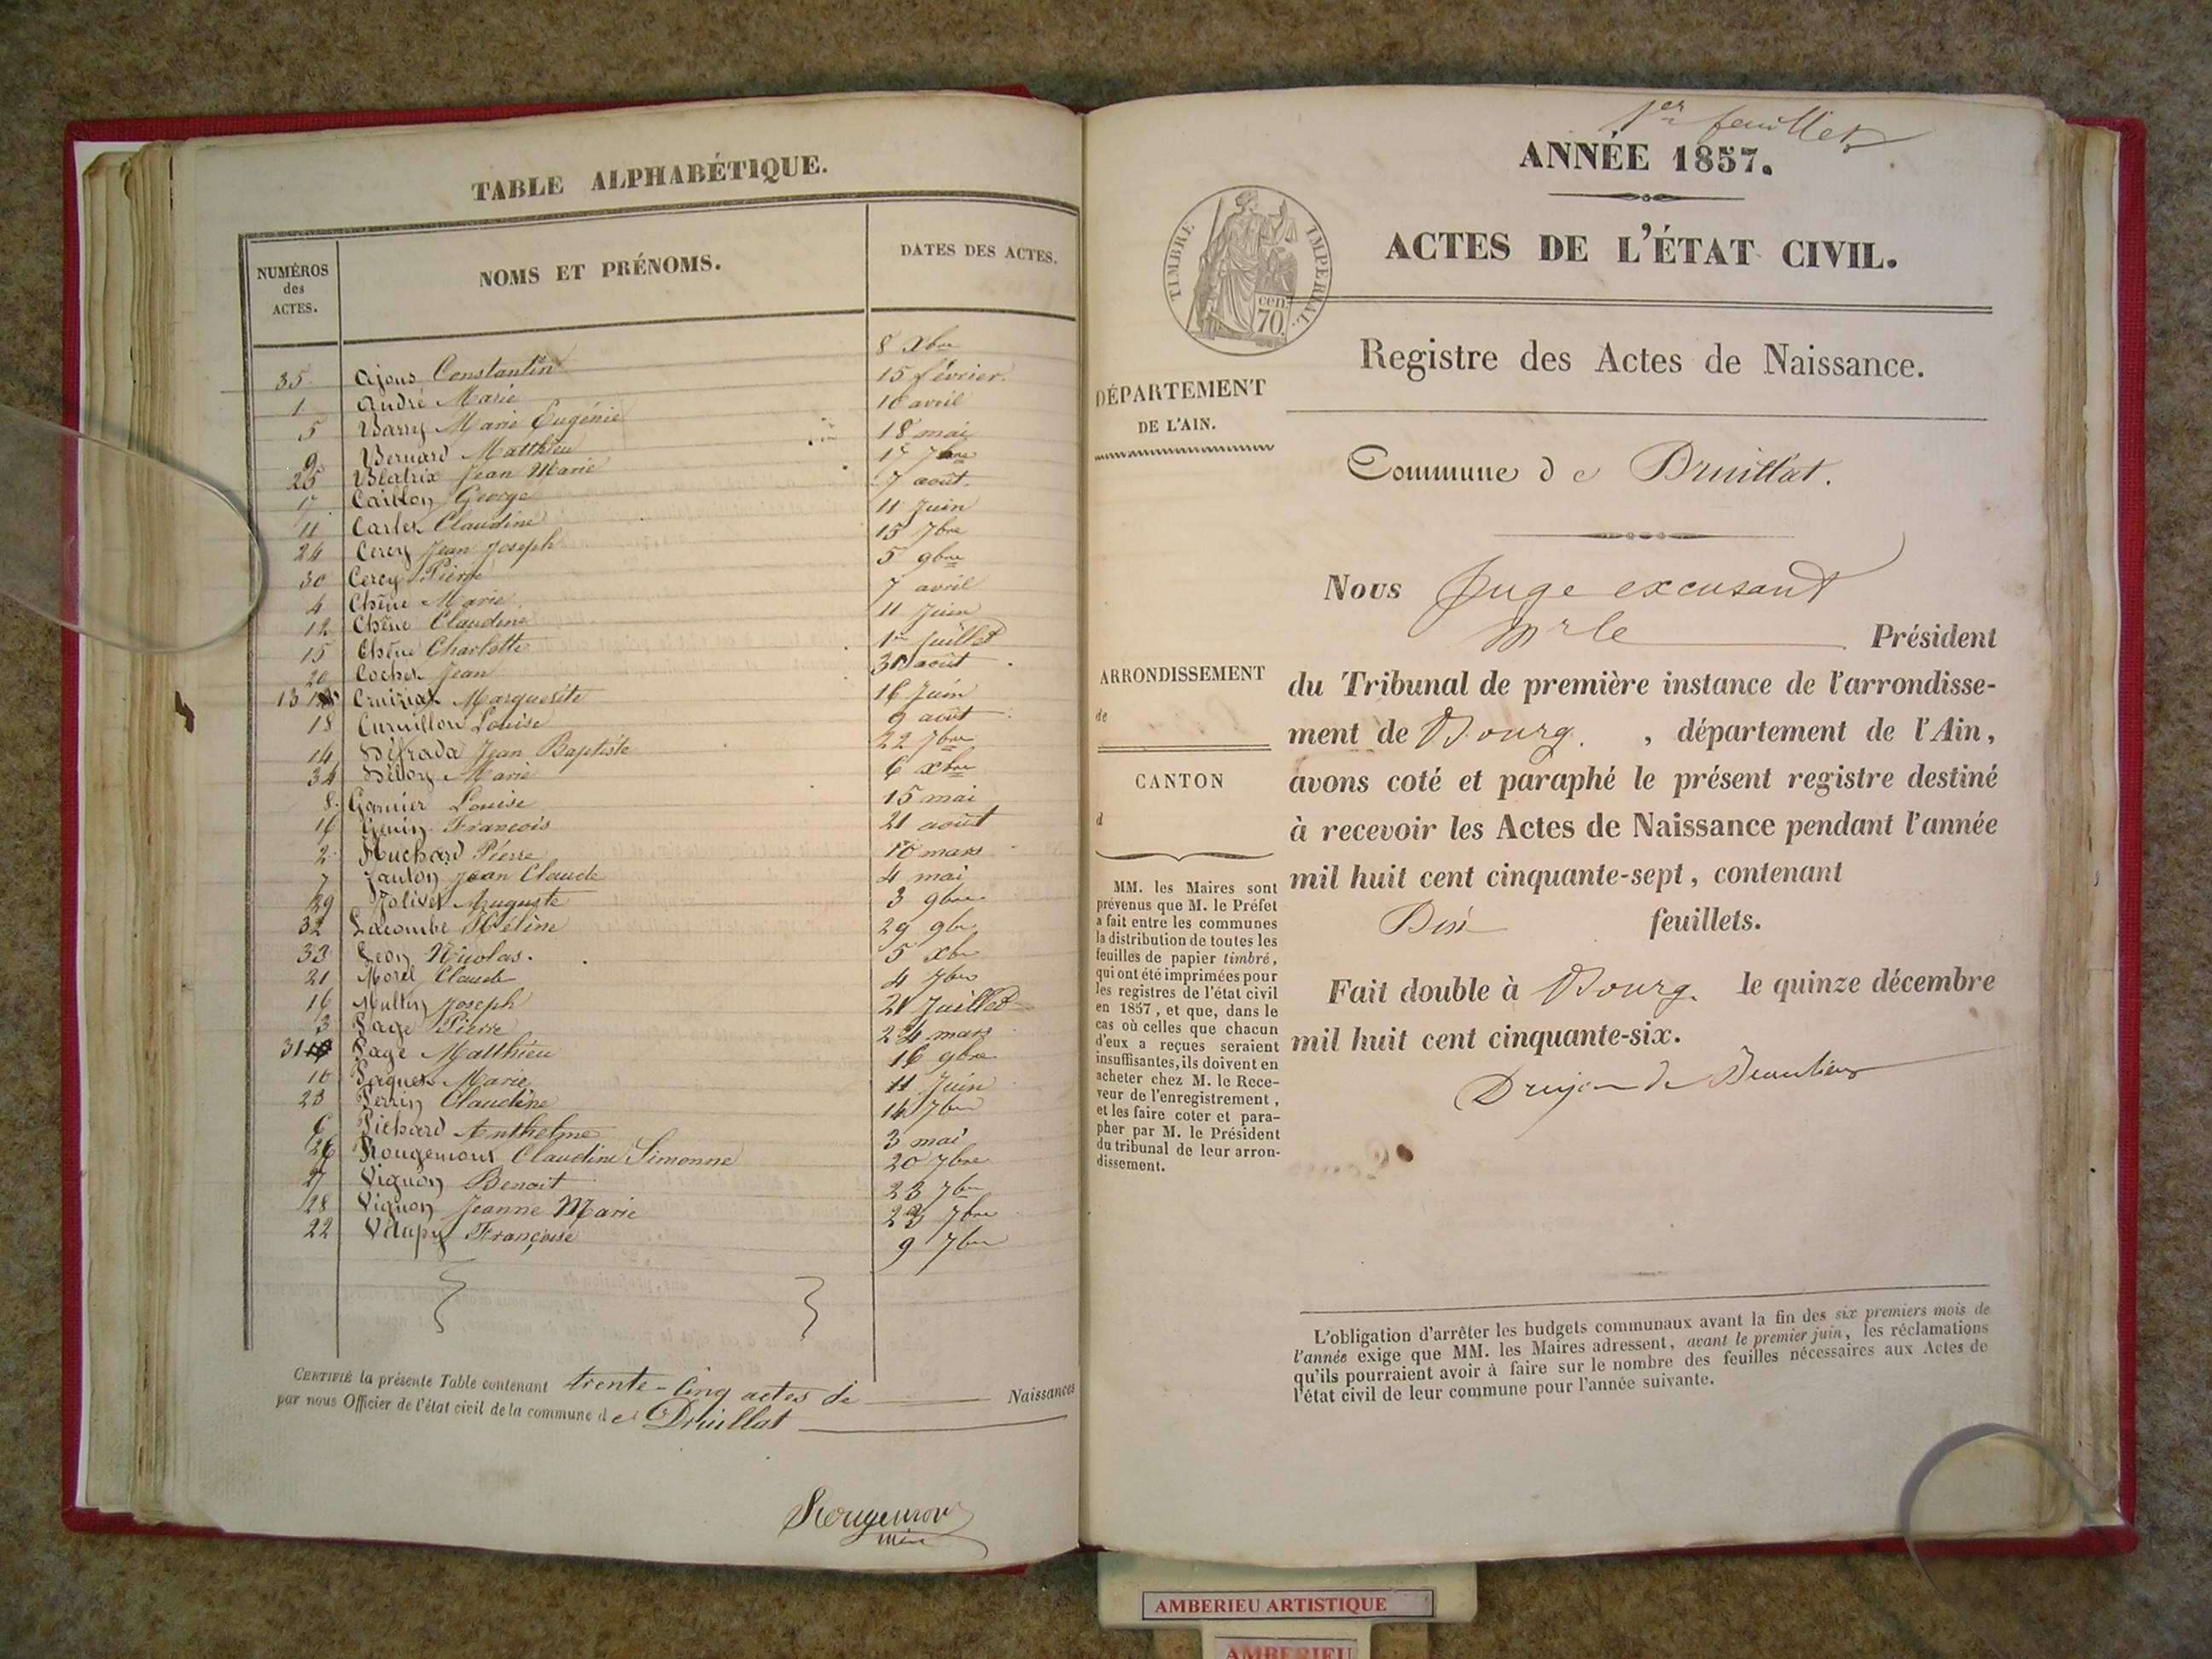 TABLE ALPHABÉTIQUE.
NUMÉROS des ACTES. NOMS ET PRÉNOMS. DATES DES ACTES.
35 Ajoux Constantin 8 Xbre
1 André Marie 15 février
5 Barry Marie Eugénie 10 avril
9 Bernard Matthieu 18 mai
25 Béatrix Jean Marie 17 7bre
17 Caillon George 7 août
11 Carlet Claudine 11 Juin
24 Cercy Jean Joseph 15 7bre
30 Cercy Pierre 5 9bre
4 Chêne Marie 7 avril
12 Chêne Claudine 11 Juin
15 Chêne Charlotte 1er Juillet
20 Cochet Jean 30 août
13 Cruiziat Marguerite 16 Juin
18 Curvillon Louise 9 août
14 Jean Baptiste 22 7bre
34 Marie 6 xbre
8 Garnier Louise 15 mai
16 Genin François 21 août
2 Huchard Pierre 10 mars
7 Janton Jean Claude 4 mai
29 Jolivet Auguste 3 9bre
32 Lacombe Hélène 29 9bre
33 Leon Nicolas. 5 xbre
21 Morel Claude 4 7bre
16 Joseph 21 Juillet
3 Page Pierre 24 mars
31 Page Matthieu 16 9bre
10 Paquet Marie 11 Juin
23 Perrin Claudine 14 7bre
6 Pichard Anthelme 3 mai
26 Rougemont Claudine Simonne 20 7bre
27 Vignon Benoit 23 7bre
28 Vignon Jeanne Marie 23 7bre
22 Françoise 9 7bre
CERTIFIÉ la présente Table contenant trente-cinq actes de Naissances
par nous Officier de l'état civil de la commune de Druillat
Rougemont
1er feuillet
ANNÉE 1857.
ACTES DE L'ÉTAT CIVIL.
TIMBRE IMPÉRIAL.
cen.
70
Registre des Actes de Naissance.
DÉPARTEMENT
DE L'AIN.
Commune de Druillat.
Nous Juge excusant
Mr le Président
ARRONDISSEMENT
de
CANTON
d
du Tribunal de première instance de l'arrondisse-
ment de Bourg. , département de l'Ain,
avons coté et paraphé le présent registre destiné
à recevoir les Actes de Naissance pendant l'année
mil huit cent cinquante-sept, contenant
Dix feuillets.
Fait double à Bourg. le quinze décembre
mil huit cent cinquante-six.
Drujon de Beaulieu
MM. les Maires sont
prévenus que M. le Préfet
a fait entre les communes
la distribution de toutes les
feuilles de papier timbré,
qui ont été imprimées pour
les registres de l'état civil
en 1857, et que, dans le
cas où celles que chacun
d'eux a reçues seraient
insuffisantes, ils doivent en
acheter chez M. le Rece-
veur de l'enregistrement,
et les faire coter et para-
pher par M. le Président
du tribunal de leur arron-
dissement.
L'obligation d'arrêter les budgets communaux avant la fin des six premiers mois de
l'année exige que MM. les Maires adressent, avant le premier juin, les réclamations
qu'ils pourraient avoir à faire sur le nombre des feuilles nécessaires aux Actes de
l'état civil de leur commune pour l'année suivante.
AMBERIEU ARTISTIQUE
AMBERIEU